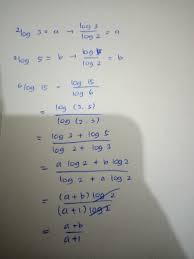 ²log 3 = a → log 3 / log 2 = a
²log 5 = b → log 5 / log 2 = b
⁶log 15 = log 15 / log 6
= log (3.5) / log (2.3)
= log 3 + log 5 / log 2 + log 3
= a log 2 + b log 2 / log 2 + a log 2
= (a+b) log 2 / (a+1) log 2
= a+b / a+1